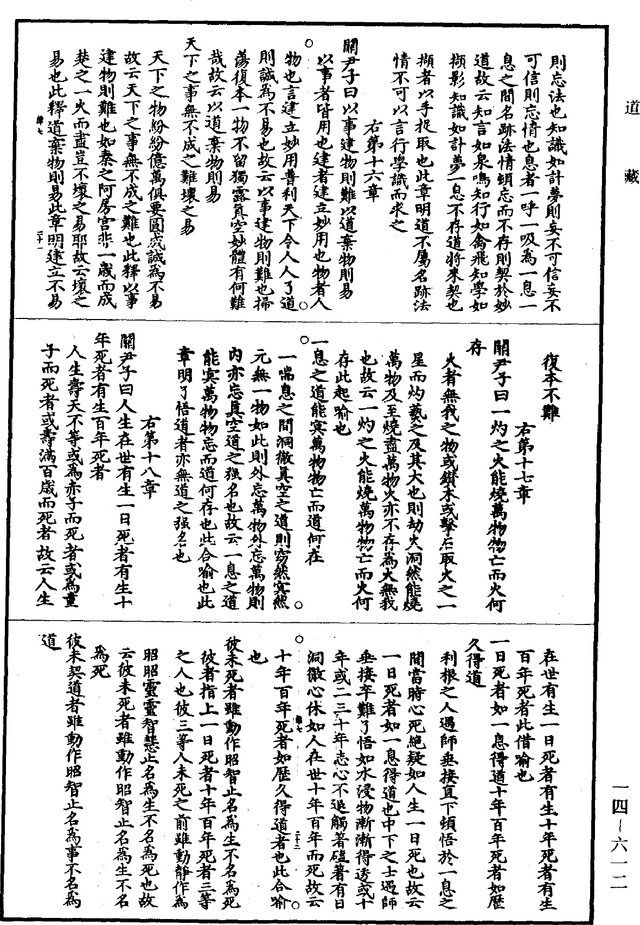 道藏
則忘法也知識如計夢則妄不可信妄不
可信則忘情也息者一呼一吸為一息一
息之間名跡法情頓忘而不存則契於妙
道故云知言如泉鳴知行如禽飛知學如
擷影知識如計夢一息不存道將來契也
擷者以手捉取也此章明道不屬名跡法
情不可以言行學識而求之
右第十六章
關尹子曰以事建物則難以道棄物則易
以事者皆用也建者建立妙用也物者人
物也言建立妙用普利天下令人人了道
則誠為不易也故云以事建物則難也掃
蕩復本一物不留獨露真空妙體有何難
哉故云以道棄物則易
天下之事無不成之難壞之易
天下之物紛紛億萬俱要圓成誠為不易
故云天下之事無不成之難也此釋以事
建物則難也如秦之阿房宮非一歲而成
楚之一火而盡豈不壞之易耶故云壞之
易也此釋道棄物則易此章明建立不易
復本不難
右第十七章
關尹子曰一灼之火能燒萬物物亡而火何
存
火者無我之物或鑽木或擊石取火之一
星而灼爇之及其大也則劫火洞然能燒
萬物及至燒盡萬物火亦不存為火無我
也故云一灼之火能燒萬物物亡而火何
存此起喻也
一息之道能冥萬物物亡而道何在
一喘息之間洞徹真空之道則窈然冥然
元無一物如此則外忘萬物外忘萬物則
內亦忘真空道之強名也故云一息之道
能冥萬物物忘而道何存也此合喻也此
章明了悟道者亦無道之強名也
右第十八章
關尹子曰人生在世有生一日死者有生十
年死者有生百年死者
人生壽夭不等或為赤子而死者或為童
子而死者或壽滿百歲而死者故云人生
在世有生一日死者有生十年死者有生
百年死者此借喻也
一日死者如一息得道十年百年死者如歷
久得道
利根之人遇師垂接直下頓悟於一息之
間當時心死絕疑如人生一日死也故云
一日死者如一息得道也中下之士遇師
垂接卒難了悟如水浸物漸漸得透或十
年或二三十年志心不退觸著磕著有日
洞徹心休如人在世十年百年而死故云
十年百年死者如歷久得道者也此合喻
也
彼未死者雖動作昭智止名為生不名為死
彼者指上一日死者十年百年死者三等
之人也彼三等人未死之前雖動靜作為
昭昭靈靈智慧止名為生不名為死也故
云彼未死者雖動作昭智止名為生不名
為死
彼未契道者雖動作昭智止名為事不名為
道
一四—六一二